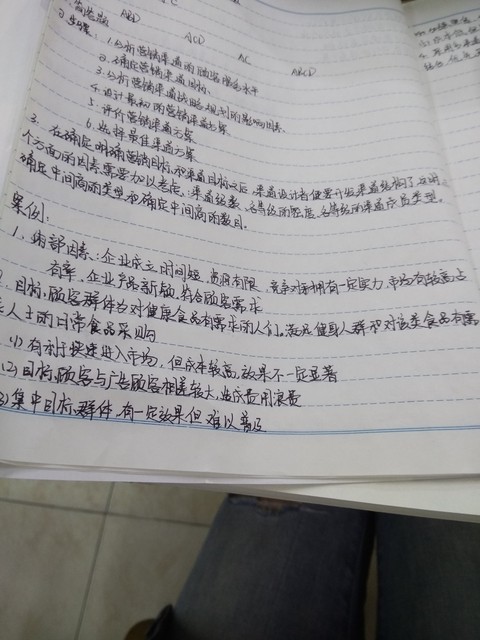 ABD ACD AC ABCD
步骤：1.分析营销渠道的服务产出水平
2.确定营销渠道目标
3.分析营销渠道战略规划的影响因素
4.设计最初的营销渠道方案
5.评价营销渠道方案
6.选择最佳渠道方案
3.在确定明确营销目标和渠道目标之后，渠道设计者便要开始渠道结构了
个方面的因素需要加以考虑：渠道级数、各等级的密度、各等级的渠道成员类型。
确定中间商的类型和确定中间商的数目。
案例：
1.内部因素：企业成立时间短，资源有限，竞争对手拥有一定实力，市场有较高占
有率，企业产品新颖，符合顾客需求
2.目标顾客群体为对健康食品有需求的人们，满足健身人群和对该类食品有需
人士的日常食品采购
(1)有利于快速进入市场，但成本较高，效果不一定显著
(2)目标顾客与广告顾客相差较大，造成费用浪费
3)集中目标群体，有一定效果但难以普及